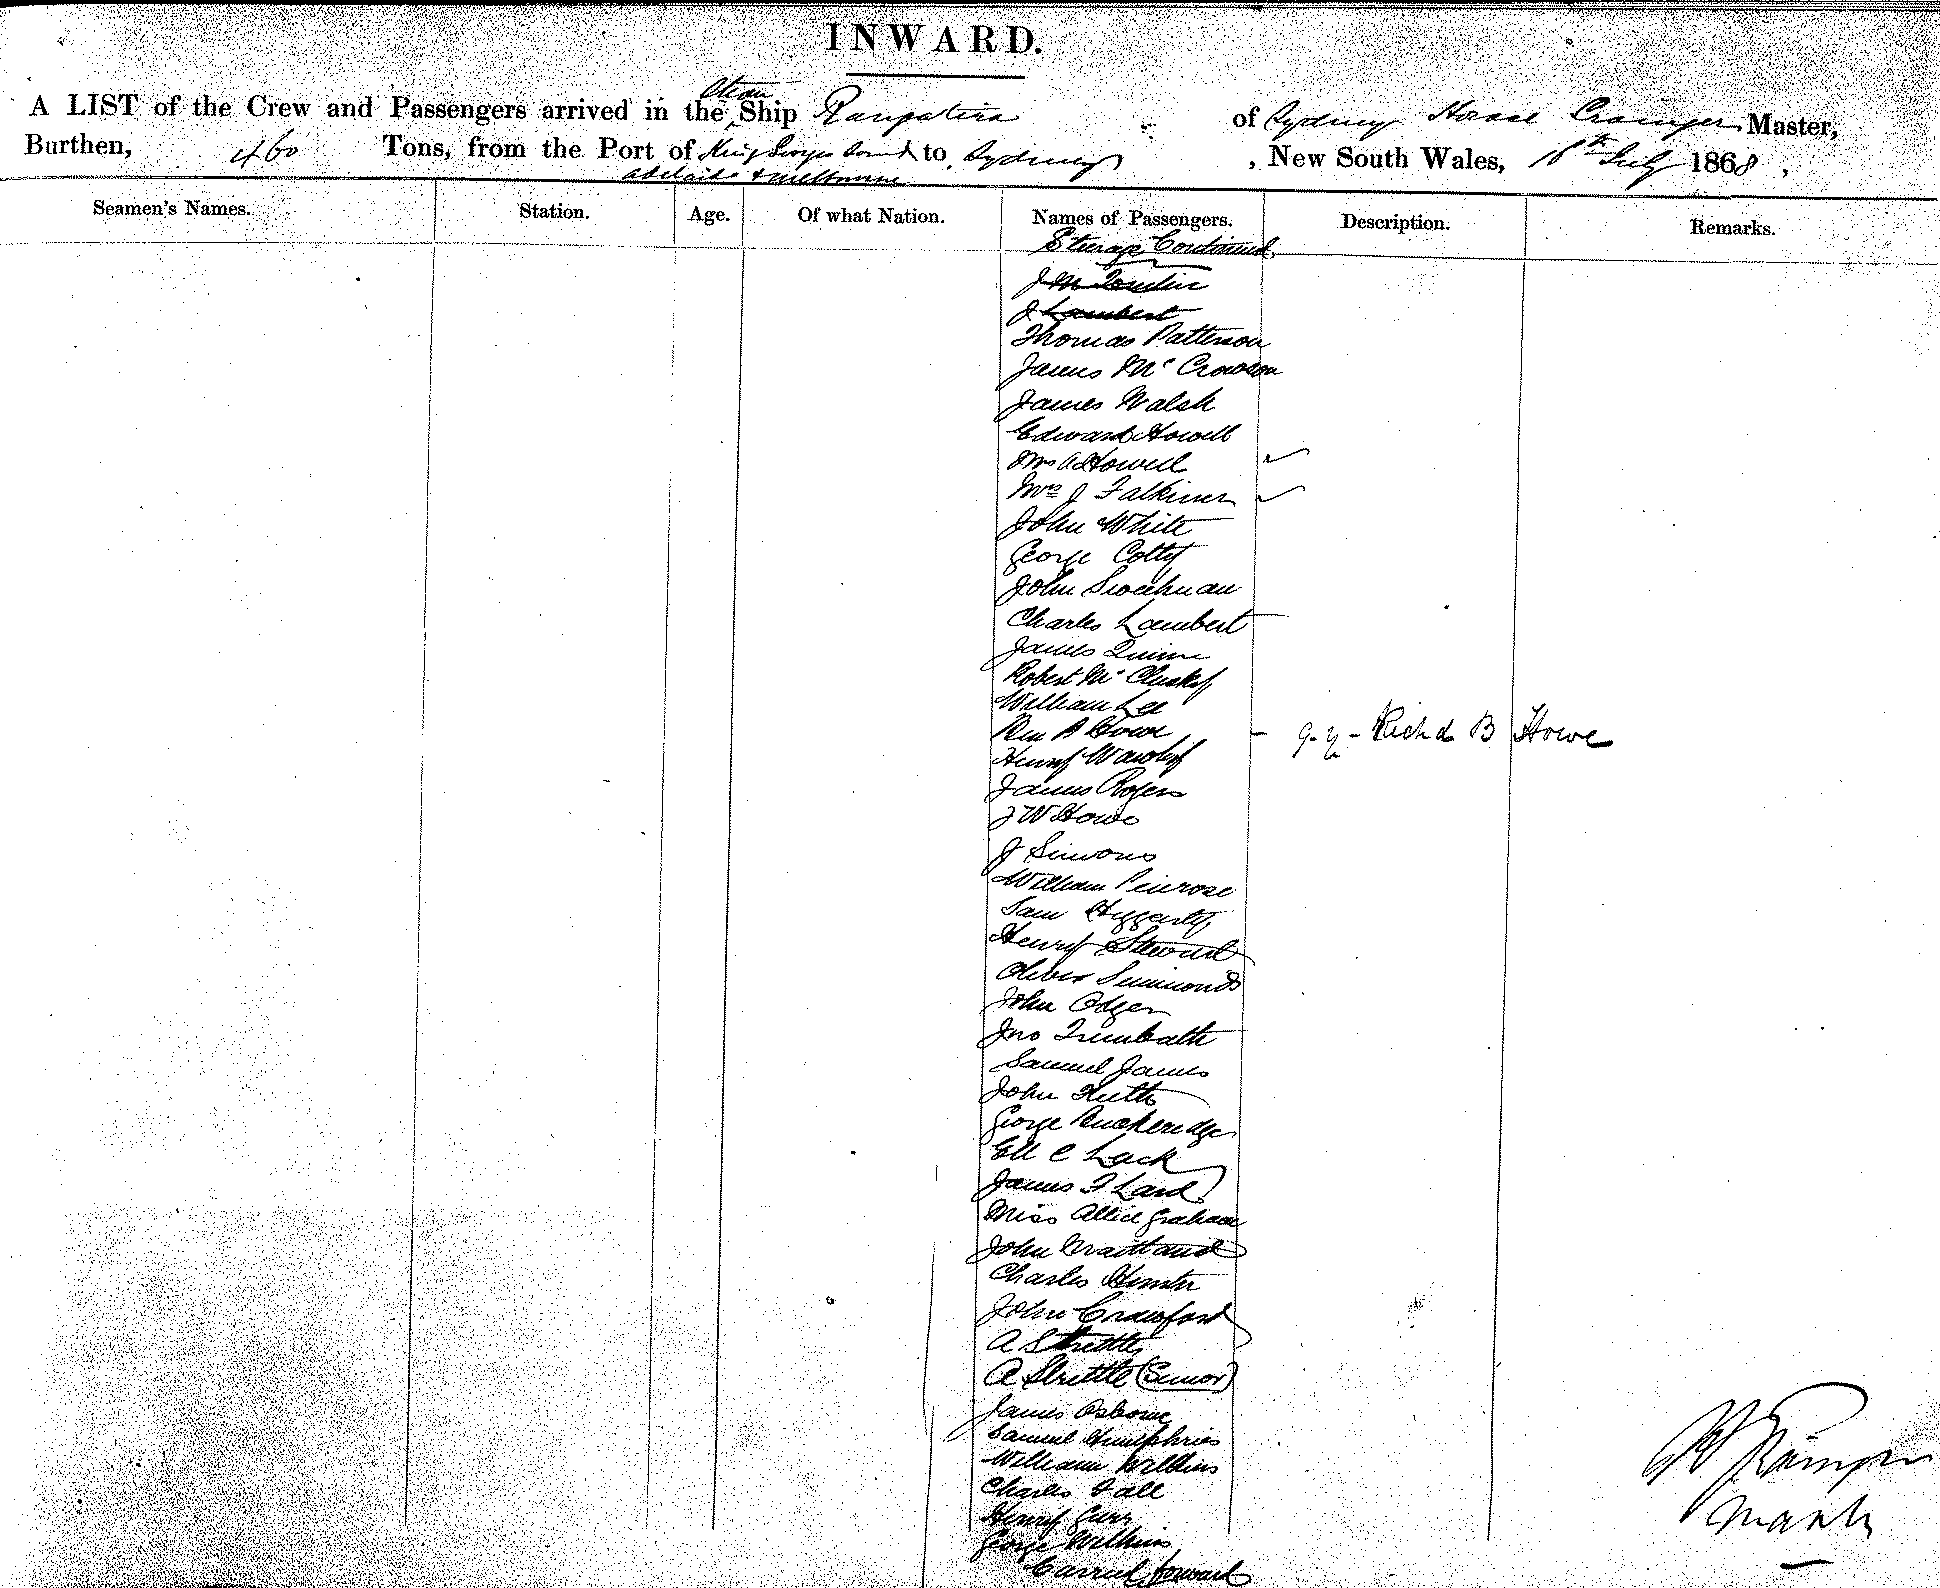 INWARD.
Steam
A LIST of the Crew and Passengers arrived in the Ship Rangatira of Sydney Horace Grainger, Master,
Burthen, 460 Tons, from the Port of King Georges Sound to Sydney, New South Wales, 18th July 1868,
Adelaide & Melbourne
Seamen's Names. Station. Age. Of what Nation. Names of Passengers. Description. Remarks.
Steerage Continued
J Lambert
Thomas Patterson
James Mc
James Walsh
Edward Howell
Mrs A Howell
Mrs J Falkiner
John White
George
John
Charles Lambert
James Quinn
Robert McClusky
William Lee
q.y - Richd B Howe
Henry
James Rogers
J W Howe
J Simons
William Penrose
Sam
Henry Steward
Oliver Simmonds
John Odger
Jno Trembath
Samuel James
John
George
C Lack
James F
Miss Allice Graham
John Maitland
Charles Hunter
John Crawford
A Strettle
A Strettle (Senior)
James Osborne
Samuel Humphries
William Wilkins
Charles
Henry
George Wilkins
Carried forward
H Grainger
Master